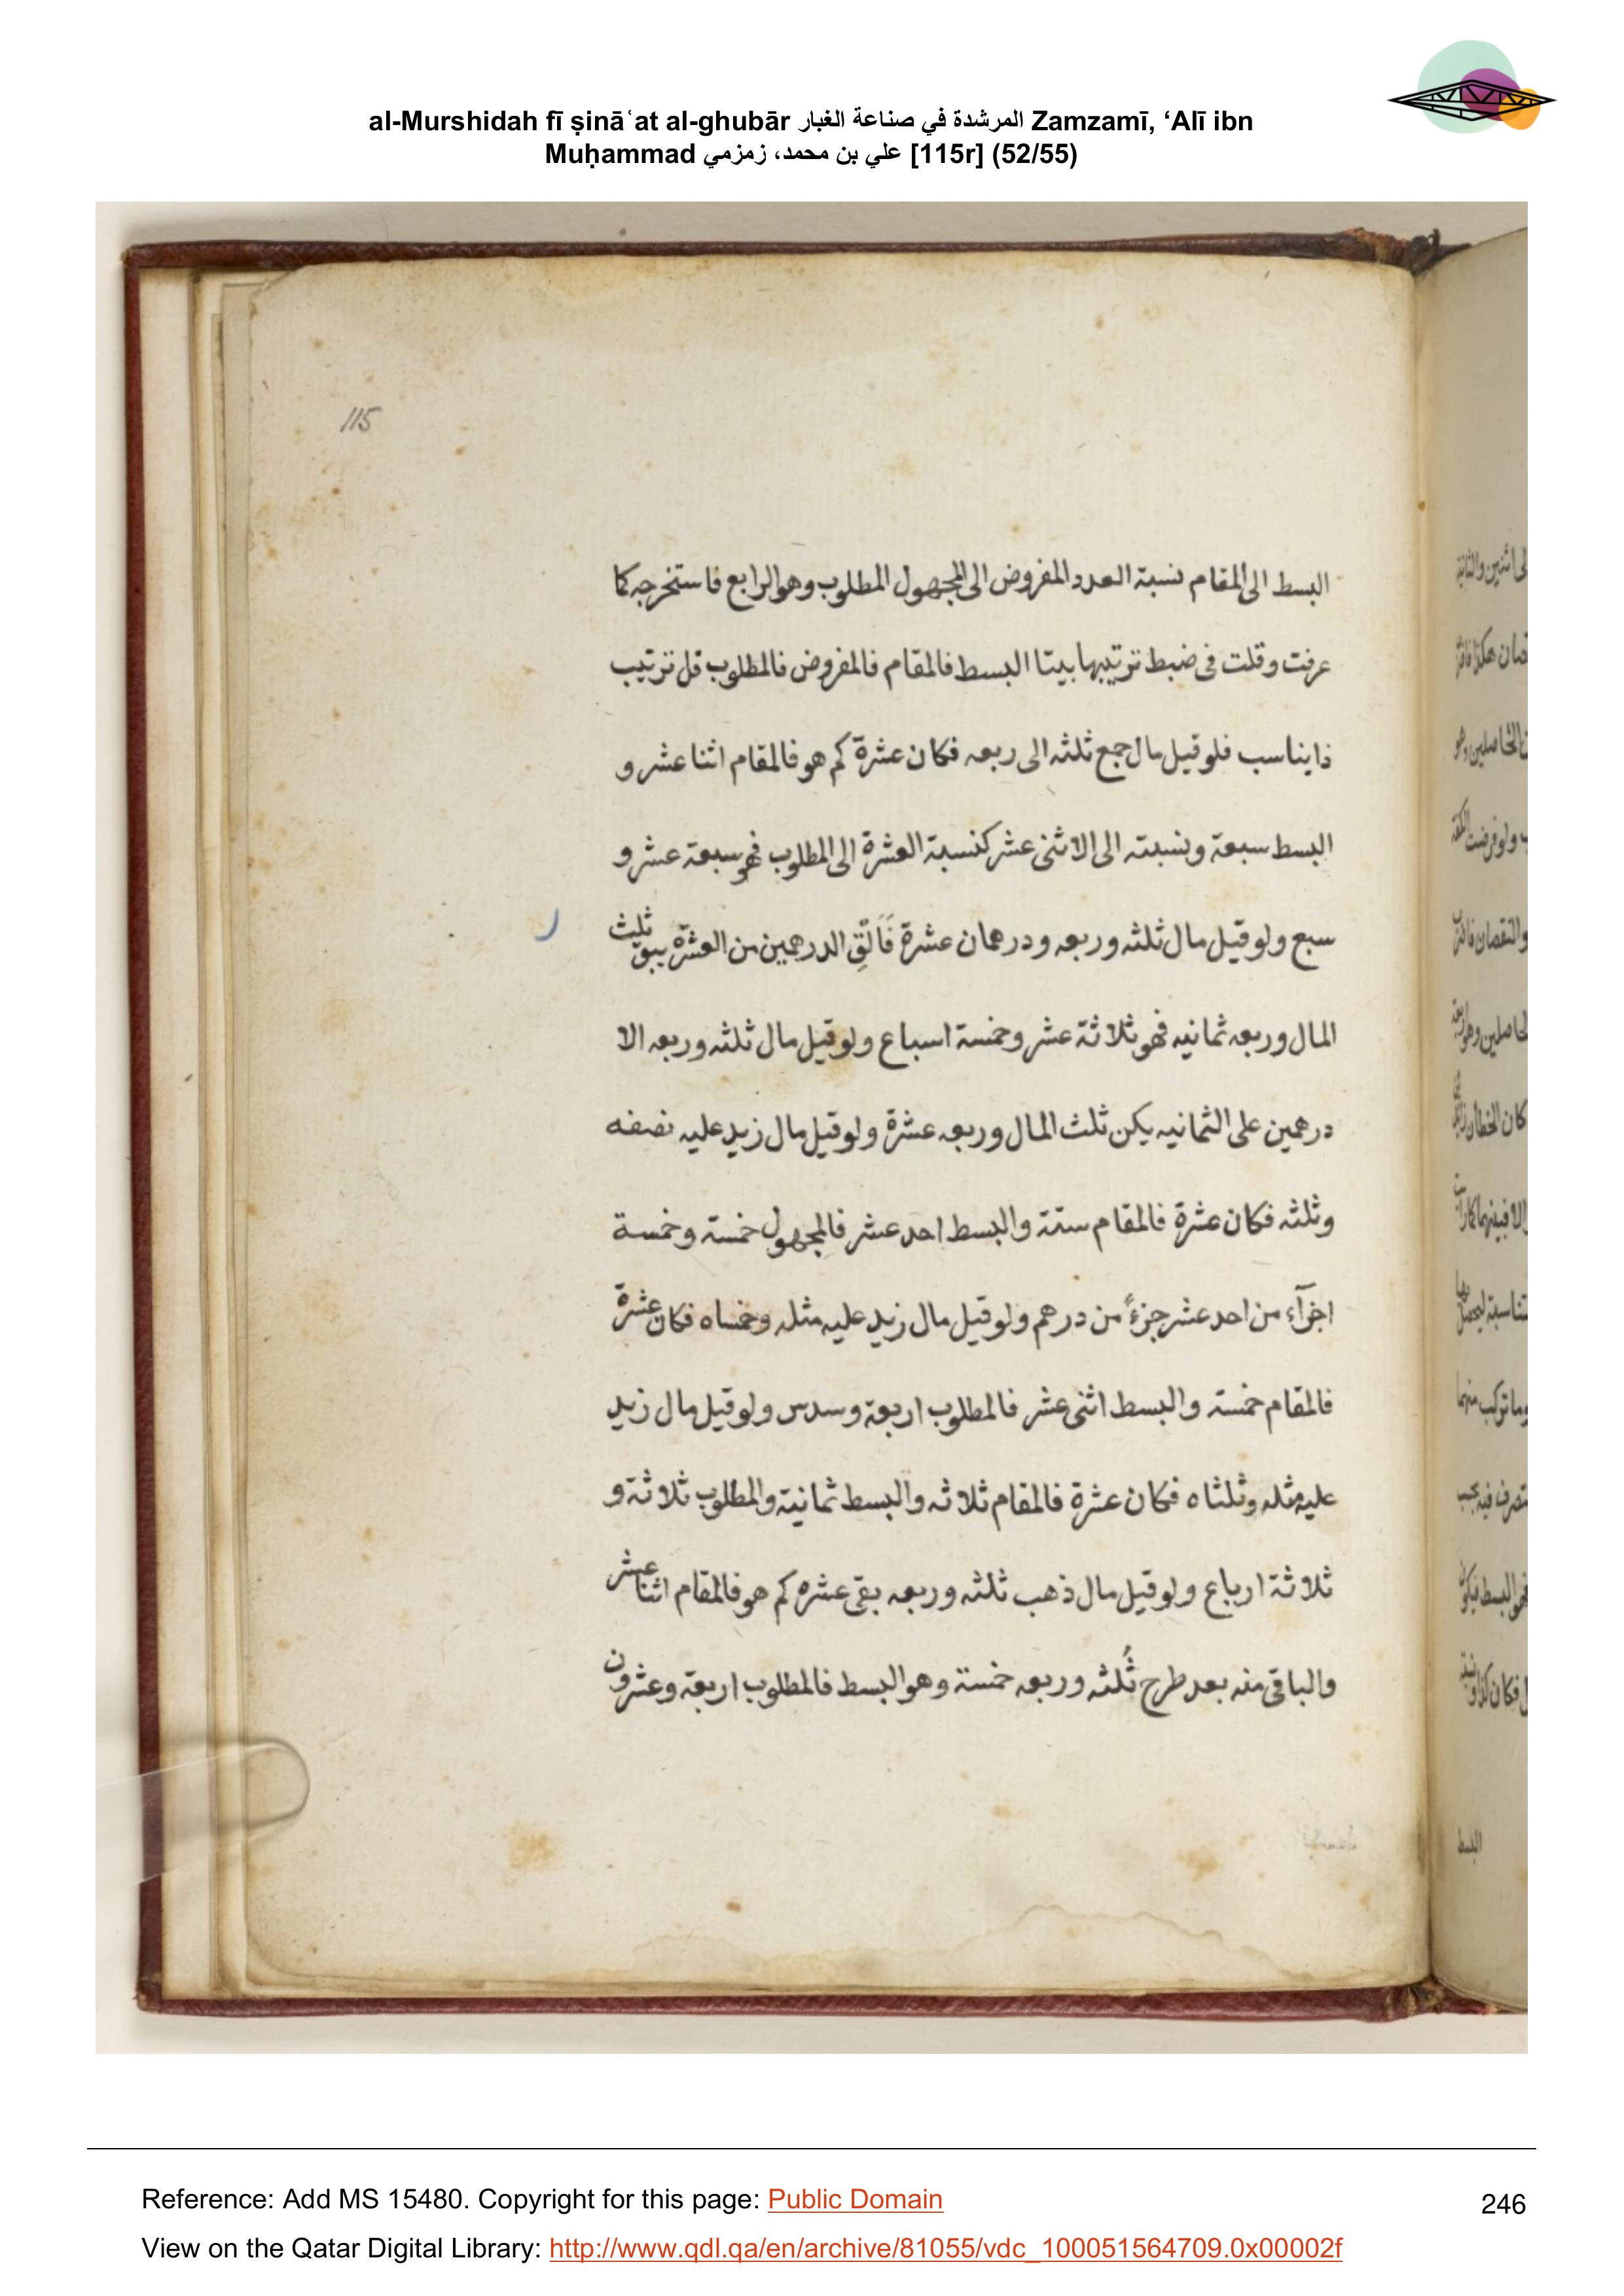 al-Murshidah fī ṣināʿat al-ghubār المرشدة في صناعة الغبار Zamzamī, ‘Alī ibn
Muḥammad علي بن محمد، زمزمي [115r] (52/55)
115
البسط الى المقام نسبة العدد المفروض الى المجهول المطلوب وهو الرابع فاستخرجه كما
عرفت وقلت فى ضبط ترتيبها بيتا البسط فالمقام فالمفروض فالمطلوب قل ترتيب
ذا يناسب فلو قيل مال جمع ثلثه الى ربعه فكان عشرة كم هو فالمقام اثنا عشر و
البسط سبعة ونسبته الى الاثنى عشر كنسبة العشرة الى المطلوب فهو سبعة عشر و
سبع ولو قيل مال ثلثه وربعه ودرهمان عشرة فَاَلْقِ الدرهمين من العشرة يبق ثلث
المال وربعه ثمانيه فهو ثلاثة عشر وخمسة اسباع ولو قيل مال ثلثه وربعه الا
درهمين على الثمانيه يكن ثلث المال وربعه عشرة ولو قيل مال زيد عليه نصفه
وثلثه فكان عشرة فالمقام ستة والبسط احد عشر فالمجهول خمسة وخمسة
اجزآء من احد عشر جزءً من درهم ولو قيل مال زيد عليه مثله وخمساه فكان عشرة
فالمقام خمسة والبسط اثنى عشر فالمطلوب اربعة وسدس ولو قيل مال زيد
عليه مثله وثلثاه فكان عشرة فالمقام ثلاثه والبسط ثمانية والمطلوب ثلاثة و
ثلاثة ارباع ولو قيل مال ذهب ثلثه وربعه بقى عشره كم هو فالمقام اثنا عشر
والباقى منه بعد طرح ثُلثه وربعه خمسة وهو البسط فالمطلوب اربعة وعشرون
البسط
Reference: Add MS 15480. Copyright for this page: Public Domain
246
View on the Qatar Digital Library: http://www.qdl.qa/en/archive/81055/vdc_100051564709.0x00002f